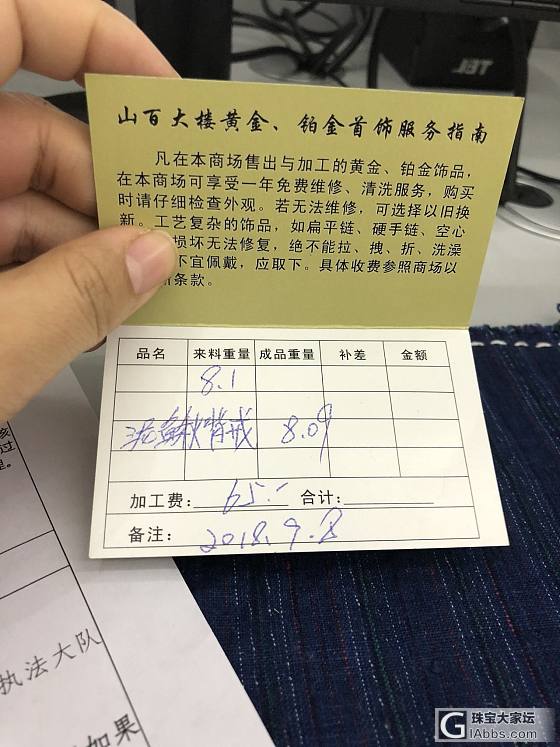 TEL
山百大楼黄金、铂金首饰服务指南
凡在本商场售出与加工的黄金、铂金饰品,
在本商场可享受一年免费维修、清洗服务，购买
时请仔细检查外观。若无法维修，可选择以旧换
新。工艺复杂的饰品，如扁平链、硬手链、空心
损坏无法修复，绝不能拉、拽、折、洗澡
不宜佩戴，应取下。具体收费参照商场以
新条款。
品名 来料重量 成品重量 补差 金额
8.1
泥鳅背戒 8.09
加工费: 65.- 合计:
备注: 2018.9.8
过
执法大队
如果
珠宝大家坛
LAbbs.com